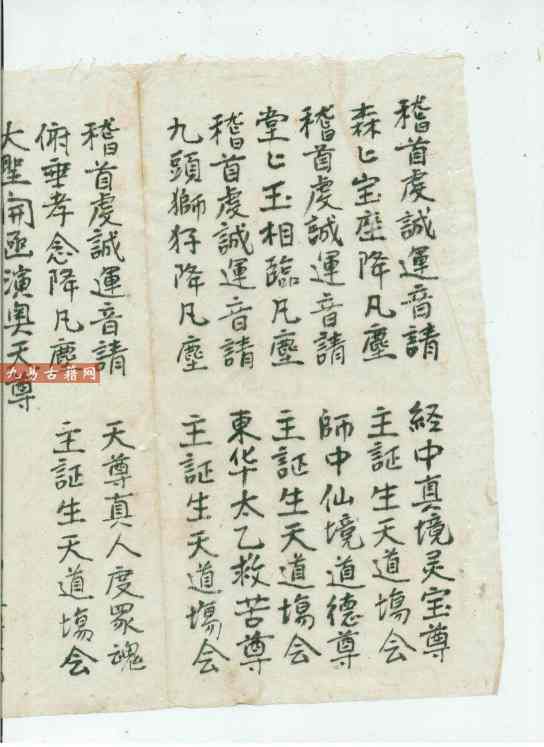 稽首虔誠運音請 経中真境灵宝尊
森匕宝座降凡塵 主証生天道塲会
稽首虔誠運音請 師中仙境道德尊
堂匕玉相臨凡塵 主証生天道塲会
稽首虔誠運音請 東华太乙救苦尊
九頭獅犼降凡塵 主証生天道塲会
稽首虔誠運音請 天尊真人度眾魂
俯垂孝念降凡塵 主証生天道塲会
大聖開函演奥天尊
九易古籍网